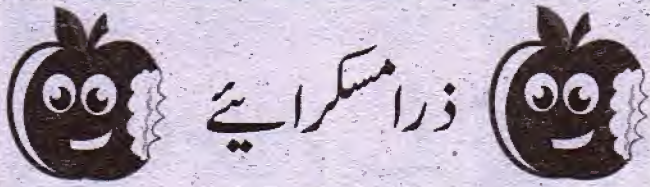 ذرا مسکرائیے